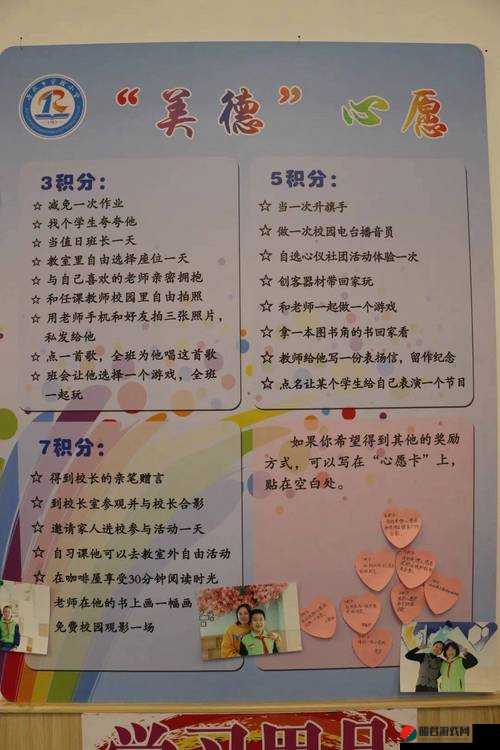 “美德”心愿
3积分：
☆ 减免一次作业
☆ 找个学生夸夸他
☆ 当值日班长一天
☆ 教室里自由选择座位一天
☆ 与自己喜欢的老师亲密拥抱
☆ 和任课教师校园里自由拍照
☆ 用老师手机和好友拍三张照片，
私发给他
☆ 点一首歌，全班为他唱这首歌
☆ 班会让他选择一个游戏，全班
一起玩
5积分：
☆ 当一次升旗手
☆ 做一次校园电台播音员
☆ 自选心仪社团活动体验一次
☆ 创客器材带回家玩
☆ 和老师一起做一个游戏
☆ 拿一本图书角的书回家看
☆ 教师给他写一份表扬信，留作纪念
☆ 点名让某个学生给自己表演一个节目
7积分：
☆ 得到校长的亲笔赠言
☆ 到校长室参观并与校长合影
☆ 邀请家人进校参与活动一天
☆ 自习课他可以去教室外自由活动
☆ 在咖啡屋享受30分钟阅读时光
老师在他的书上画一幅画
免费校园观影一场
如果你希望得到其他的奖励
方式，可以写在“心愿卡”上，
贴在空白处。